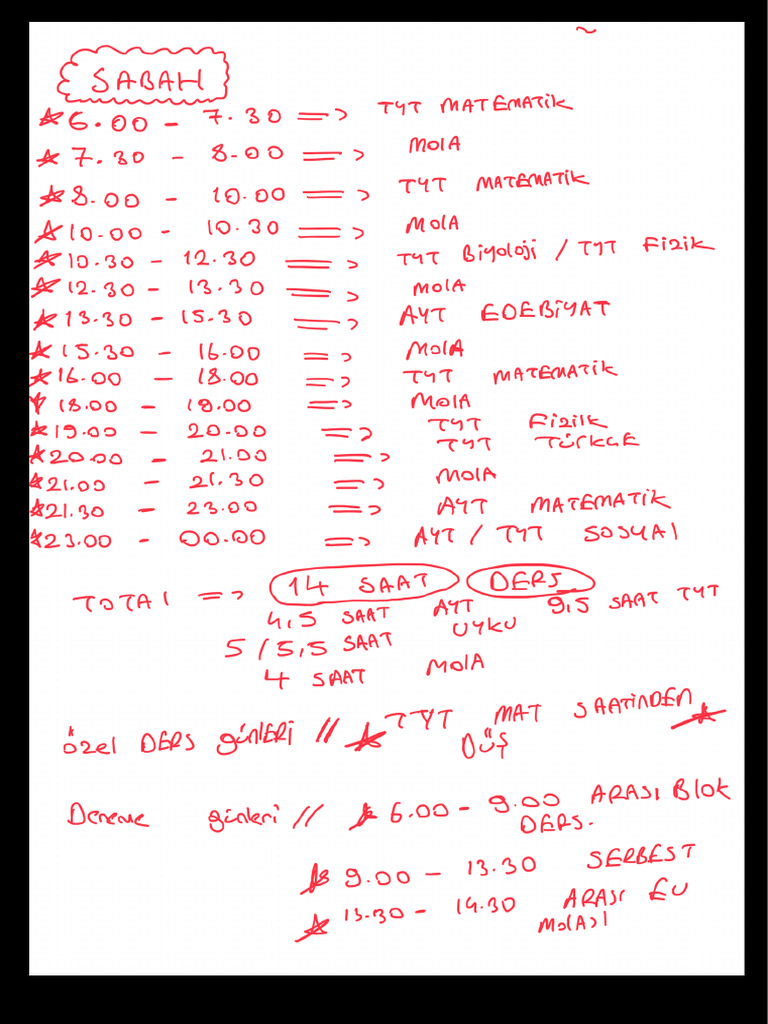 SABAH
6.00 - 7.30 => TYT MATEMATİK
7.30 - 8.00 => MOlA
8.00 - 10.00 => TYT MATEMATİK
10.00 - 10.30 => MOlA
10.30 - 12.30 => TYT Biyoloji / TYT Fizik
12.30 - 13.30 => MOlA
13.30 - 15.30 => AYT EDEBİYAT
15.30 - 16.00 => MOlA
16.00 - 18.00 => TYT MATEMATİK
18.00 - 19.00 => MOlA
19.00 - 20.00 => TYT Fizik
20.00 - 21.00 => TYT TÜRKÇE
21.00 - 21.30 => MOlA
21.30 - 23.00 => AYT MATEMATİK
23.00 - 00.00 => AYT / TYT SOSYAl
TOTAl => 14 SAAT DERS
4,5 SAAT AYT 9,5 SAAT TYT
5 / 5,5 SAAT UYKU
4 SAAT MOlA
özel DERS günlERİ // TYT MAT SAATİNDEN
DÜŞ
Deneme günleri // 6.00 - 9.00 ARASI Blok
DERS.
9.00 - 13.30 SERBEST
13.30 - 14.30 ARASI EV
MOlASI